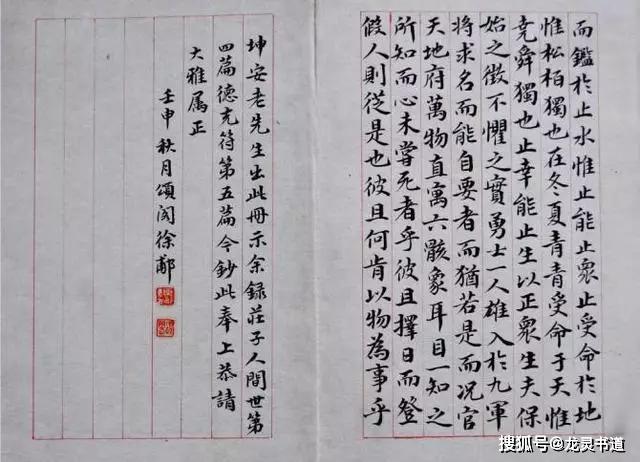 而鑑於止水惟止能止衆止受命於地
惟松柏獨也在冬夏青青受命于天惟
堯舜獨也止幸能止生以正衆生夫保
始之徵不懼之實勇士一人雄入於九軍
將求名而能自要者而猶若是而况官
天地府萬物直寓六骸象耳目一知之
所知而心未嘗死者乎彼且擇日而登
假人則從是也彼且何肯以物為事乎
坤安老先生出此冊示余錄莊子人間世第
四篇德充符第五篇今鈔此奉上恭請
大雅属正
壬申秋月頌閣徐郙
搜狐号@龙灵书道